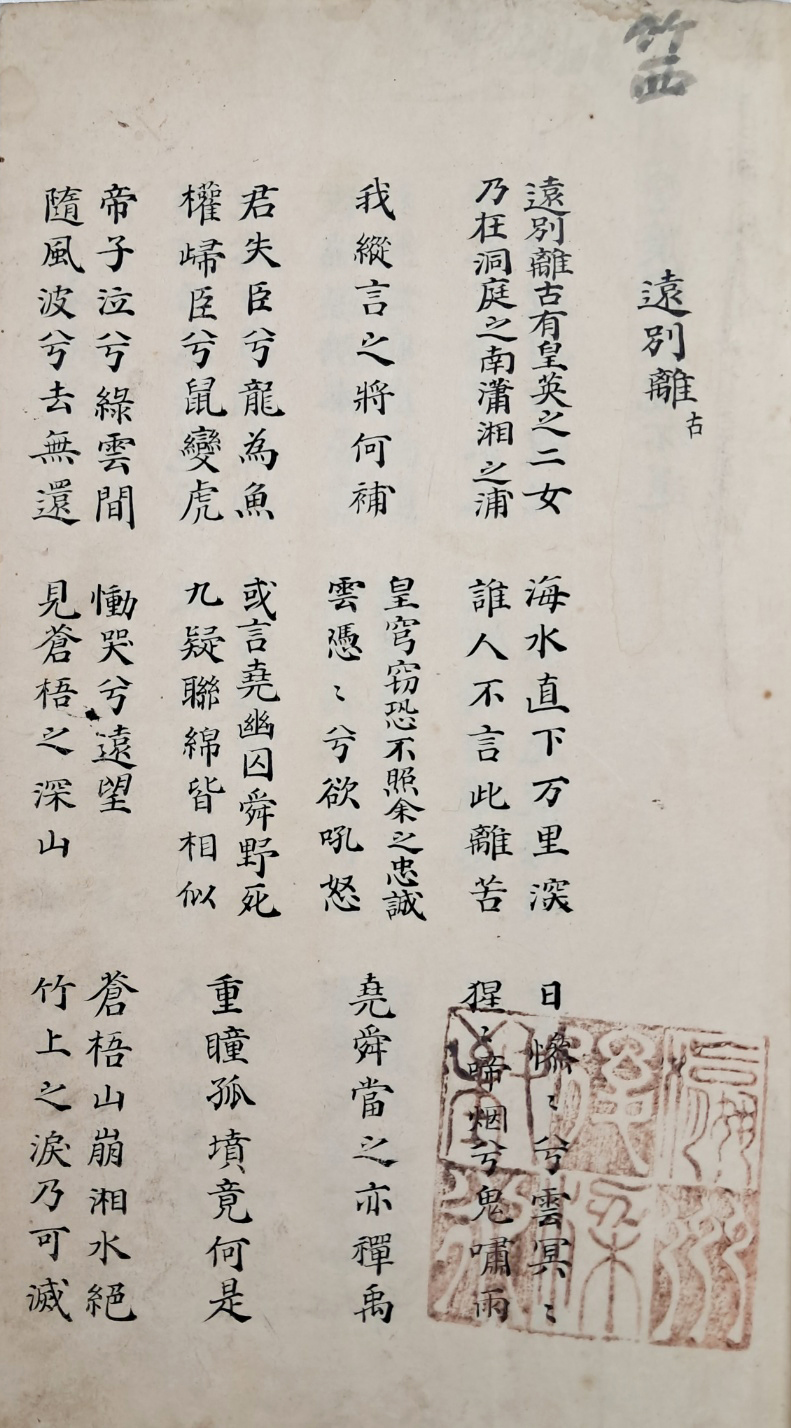 竹西
遠別離古
遠別離古有皇英之二女
乃在洞庭之南瀟湘之浦
海水直下万里深
誰人不言此離苦
日慘〻兮雲冥〻
猩〻啼烟兮鬼嘯雨
我縱言之將何補
皇穹窃恐不照余之忠誠
雲憑〻兮欲吼怒
堯舜當之亦禪禹
君失臣兮龍為魚
權歸臣兮鼠變虎
或言堯幽囚舜野死
九疑聯綿皆相似
重瞳孤墳竟何是
帝子泣兮綠雲間
隨風波兮去無還
慟哭兮遠望
見蒼梧之深山
蒼梧山崩湘水絕
竹上之淚乃可滅